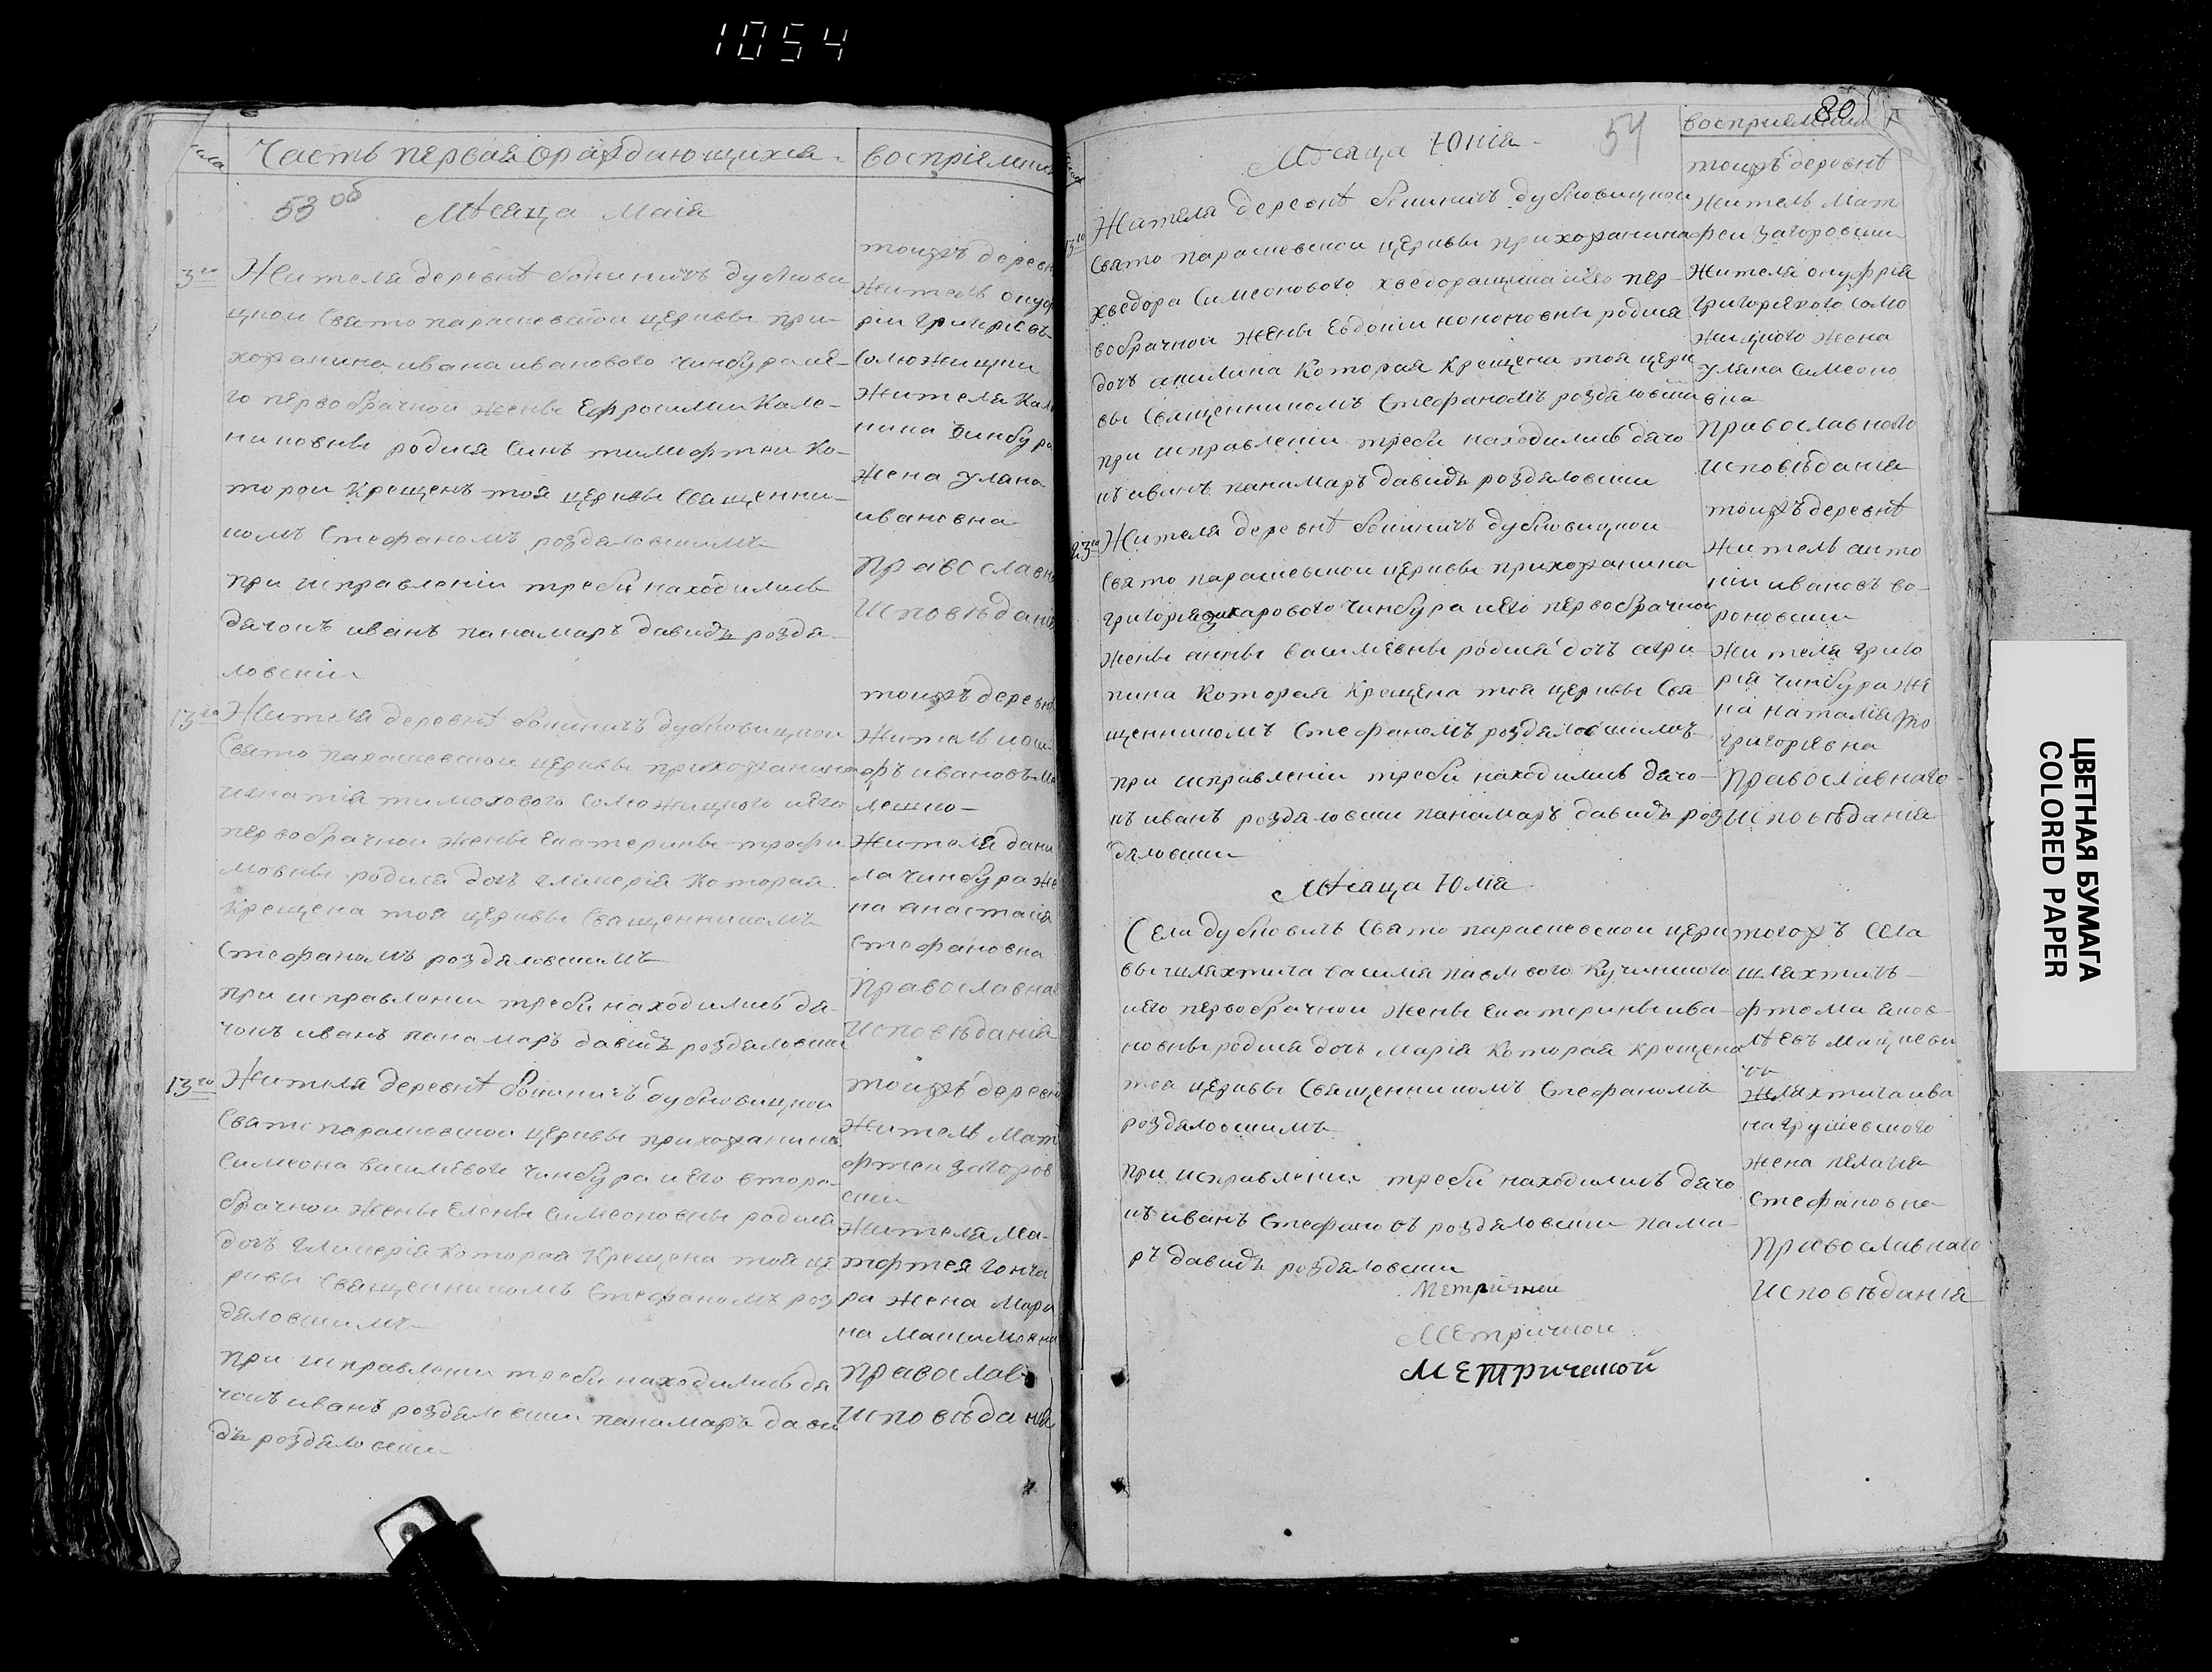 1054
Часть первая ораждающихся
восприемни
53 об
Мѣсяца Маія
3го
Жителя деревнѣ
щкой Свято парасневской церквы при-
хожанина ивана иванового чинбура иѣ-
го первобрачной жены Ефросиміи Кало-
никовны родися Синъ тимофтии Ко-
торои Крещенъ тоя церквы Священни-
комъ Стефаномъ роздяловскимъ
при исправленіи треби находились
дячокъ иванъ панамаръ давидъ роздя-
ловскіи
тоижъ деревн
житель онуф
рии григориевъ
Жителя Кал
ника Чинбура
жена уляна
ивановна
Православн
Исповѣданія
13го
Жителя деревнѣ
Свято парасневской церквы прихожанина
игнатія тимохового иѣго
первобрачной жены Екатерины трофи
мовны родися дочъ гликерія Которая
Крещена тоя церквы Священникомъ
Стефаномъ роздяловскимъ
при исправлении треби находились дя-
чокъ иванъ панамаръ давидъ роздяловски
тоижъ деревн
Житель иоси
фъ ивановъ
Жителя дани
ла чинбура же
на анастасія
Стефановна
Православна
Исповѣданія
13го
Жителя деревнѣ
Свято парасневской церквы прихожанина
Симеона василѣвого чинбура иѣго второ-
брачной жены Елены Симеоновны родися
дочъ гликерія Которая Крещена тоя це
рквы Священникомъ Стефаномъ роз
дяловскимъ
при исправлении треби находились дя
чокъ иванъ роздяловски панамаръ дави
дъ роздяловски
тоижъ деревн
житель Мат
фтеи загоров
ски
Жителя Ма-
тфтея гонча
ра жена Мари
на Максимовна
Православ
Исповѣданія
80
54
восприемники
Мѣсяца Юнія
Жителя деревнѣ
Свято парасневской церквы прихожанина
хведора Симеонового иѣго пер-
вобрачной жены Евдокіи кононовны родися
дочъ акилина Которая Крещена тоя церк
вы Священникомъ Стефаномъ роздяловски
при исправленіи треби находились дячо
къ иванъ панамаръ давидъ роздяловски
тоижъ деревнѣ
житель Мат
феи загоровски
Жителя онуфрія
григориевого
жена
уляна Симеоно
вна
Православного
Исповѣданія
23го
Жителя деревнѣ
Свято парасневской церквы прихожанина
григорія чинбура иѣго первобрачной
жены анны василѣвны родися дочъ агри
пина Которая Крещена тоя церквы Свя
щенникомъ Стефаномъ роздяловскимъ
при исправленіи треби находились дячо-
къ иванъ роздяловски панамаръ давидъ роз
дяловски
тоижъ деревнѣ
Житель анто
нии ивановъ во-
роновски
Жителя григо
рія чинбура же
на наталія
григоріевна
Православнаго
Исповѣданія
Мѣсяца Юлія
Села Свято парасневской церк
вы шляхтича василія павлового Кучинского
иѣго первобрачной жены Екатерины ива
новны родися дочъ Марія Которая Крещена
тоя церквы Священникомъ Стефаномъ
роздяловскимъ
при исправлении треби находились дячо
къ иванъ Стефановъ роздяловски пама
ръ давидъ роздяловски
тогожъ Села
шляхтичъ
фтома
шляхтича ива
на грушевского
жена пелагія
Стефановна
Православнаго
Исповѣданія
Метричнои
Метричнои
Метрической
ЦВЕТНАЯ БУМАГА
COLORED PAPER